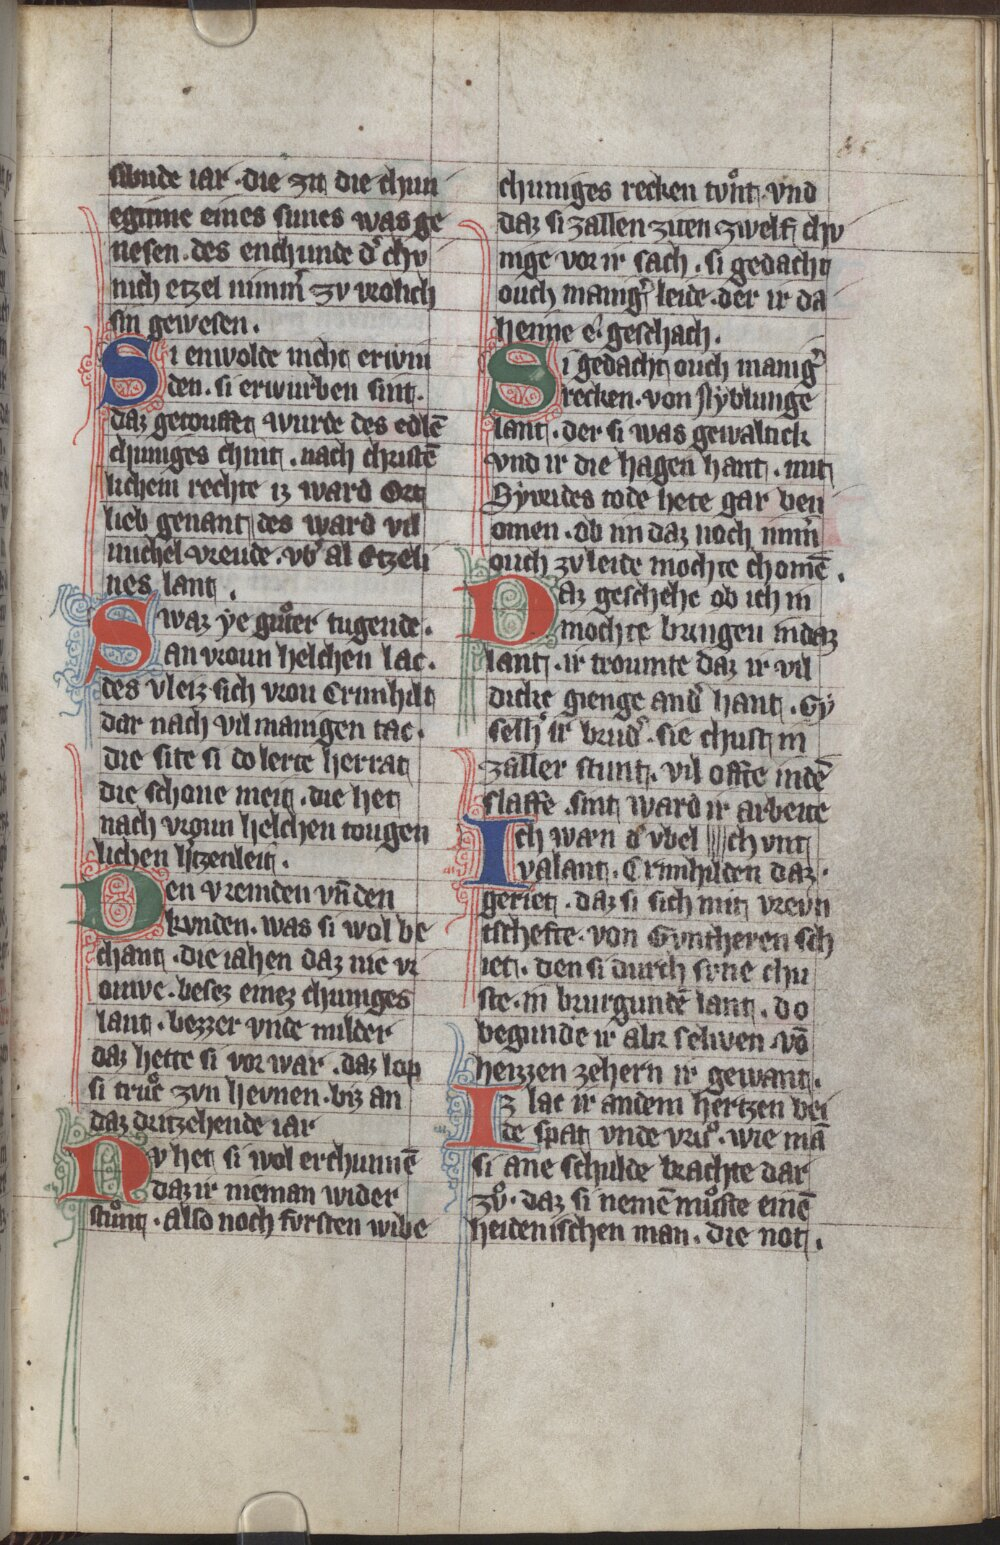 sibnde iar · die zit die chun
eginne eines sunes was ge
nesen · des enchunde d͛ chv
nich etzel nimm͛ zv vrolich
sin gewesen ·
Si enwolde nicht erwin
den · si erwurben sint ·
daz getouffet wurde des edlē
chuniges chint · nach christē
lichem rechte iz ward Ort
lieb genant des ward vil
michel vreude · vb͛ al Etzeli
nes lant ·
Swaz ye gůter tugende ·
an vroun helchen lac ·
des vleiz sich vrou Crimhilt
dar nach vil manigen tac ·
die site si do lerte herrat
die schone meit · die het
nach vroun helchen tougen
lichen hˢtzenleit ·
Den vremden vn̄ den
kvnden · was si wol be
chant · die iahen daz nie vr
ouwe · besez einez chuniges
lant · bezzer vnde milder
daz hette si vor war · daz lop
si trůc zvn hevnen · biz an
daz dritzehende iar
Nv het si wol erchunnē
daz ir nieman wider
stůnt · also noch fvrsten wibe
chuniges recken tůnt · vnd
daz si zallen ziten zwelf chv
nige vor ir sach · si gedacht
ouch manig͛ leide · der ir da
heime e · geschach ·
Si gedacht ouch manig͛
recken · von Nyblunge
lant · der si was gewaltick
vnd ir die hagen hant · mit
Syvrides tode hete gar ben
omen · ob im daz noch nim͛
ouch zv leide mochte chomē ·
Daz geschehe ob ich in
mochte bringen in daz
lant · ir troumte daz ir vil
dicke gienge and͛ hant · Gy
selh͛ ir brud͛ · sie chust in
zaller stunt · vil offte in dē
slaffe · sint ward ir arbeite
Ich wæn d͛ vbel chunt
valant · Crimhilden daz ·
geriet · daz si sich mit vrevn
tschefte · von Gvntheren sch
iet · den si durch svne chu
ste · in bvrgundē lant · do
begunde ir abr selwen · vō
heizzen zehern ir gewant ·
Iz lac ir an dem hertzen bei
de spat vnde vrů · wie mā
si ane schulde brachte dar
zů · daz si nemē můste einē
heidenischen man · die not ·